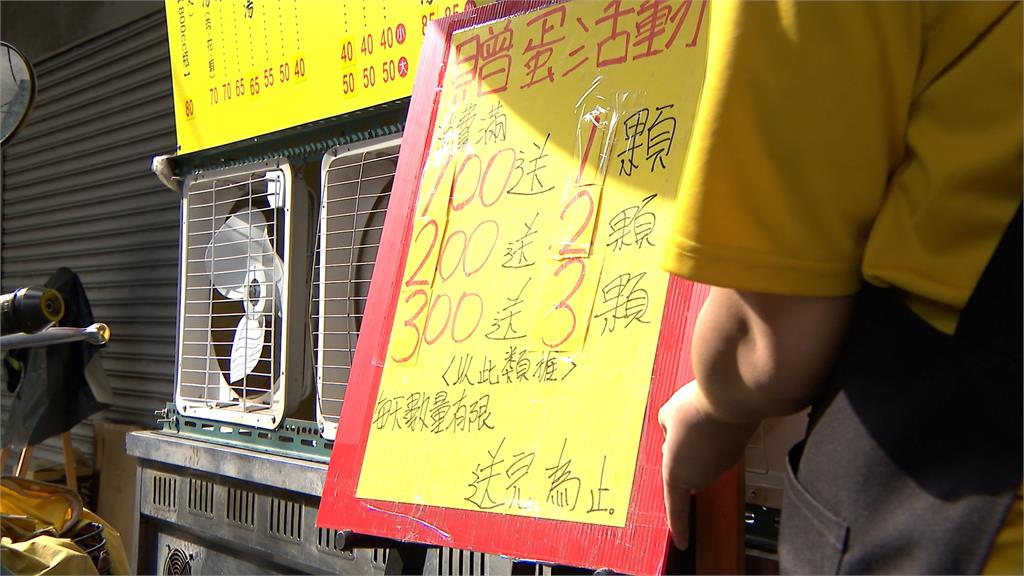 40 40 40 小
80 70 70 65 65 55 50 40
50 50 50 大
贈蛋活動
消費滿
100送1顆
200送2顆
300送3顆
〈以此類推〉
每天數量有限
送完為止.